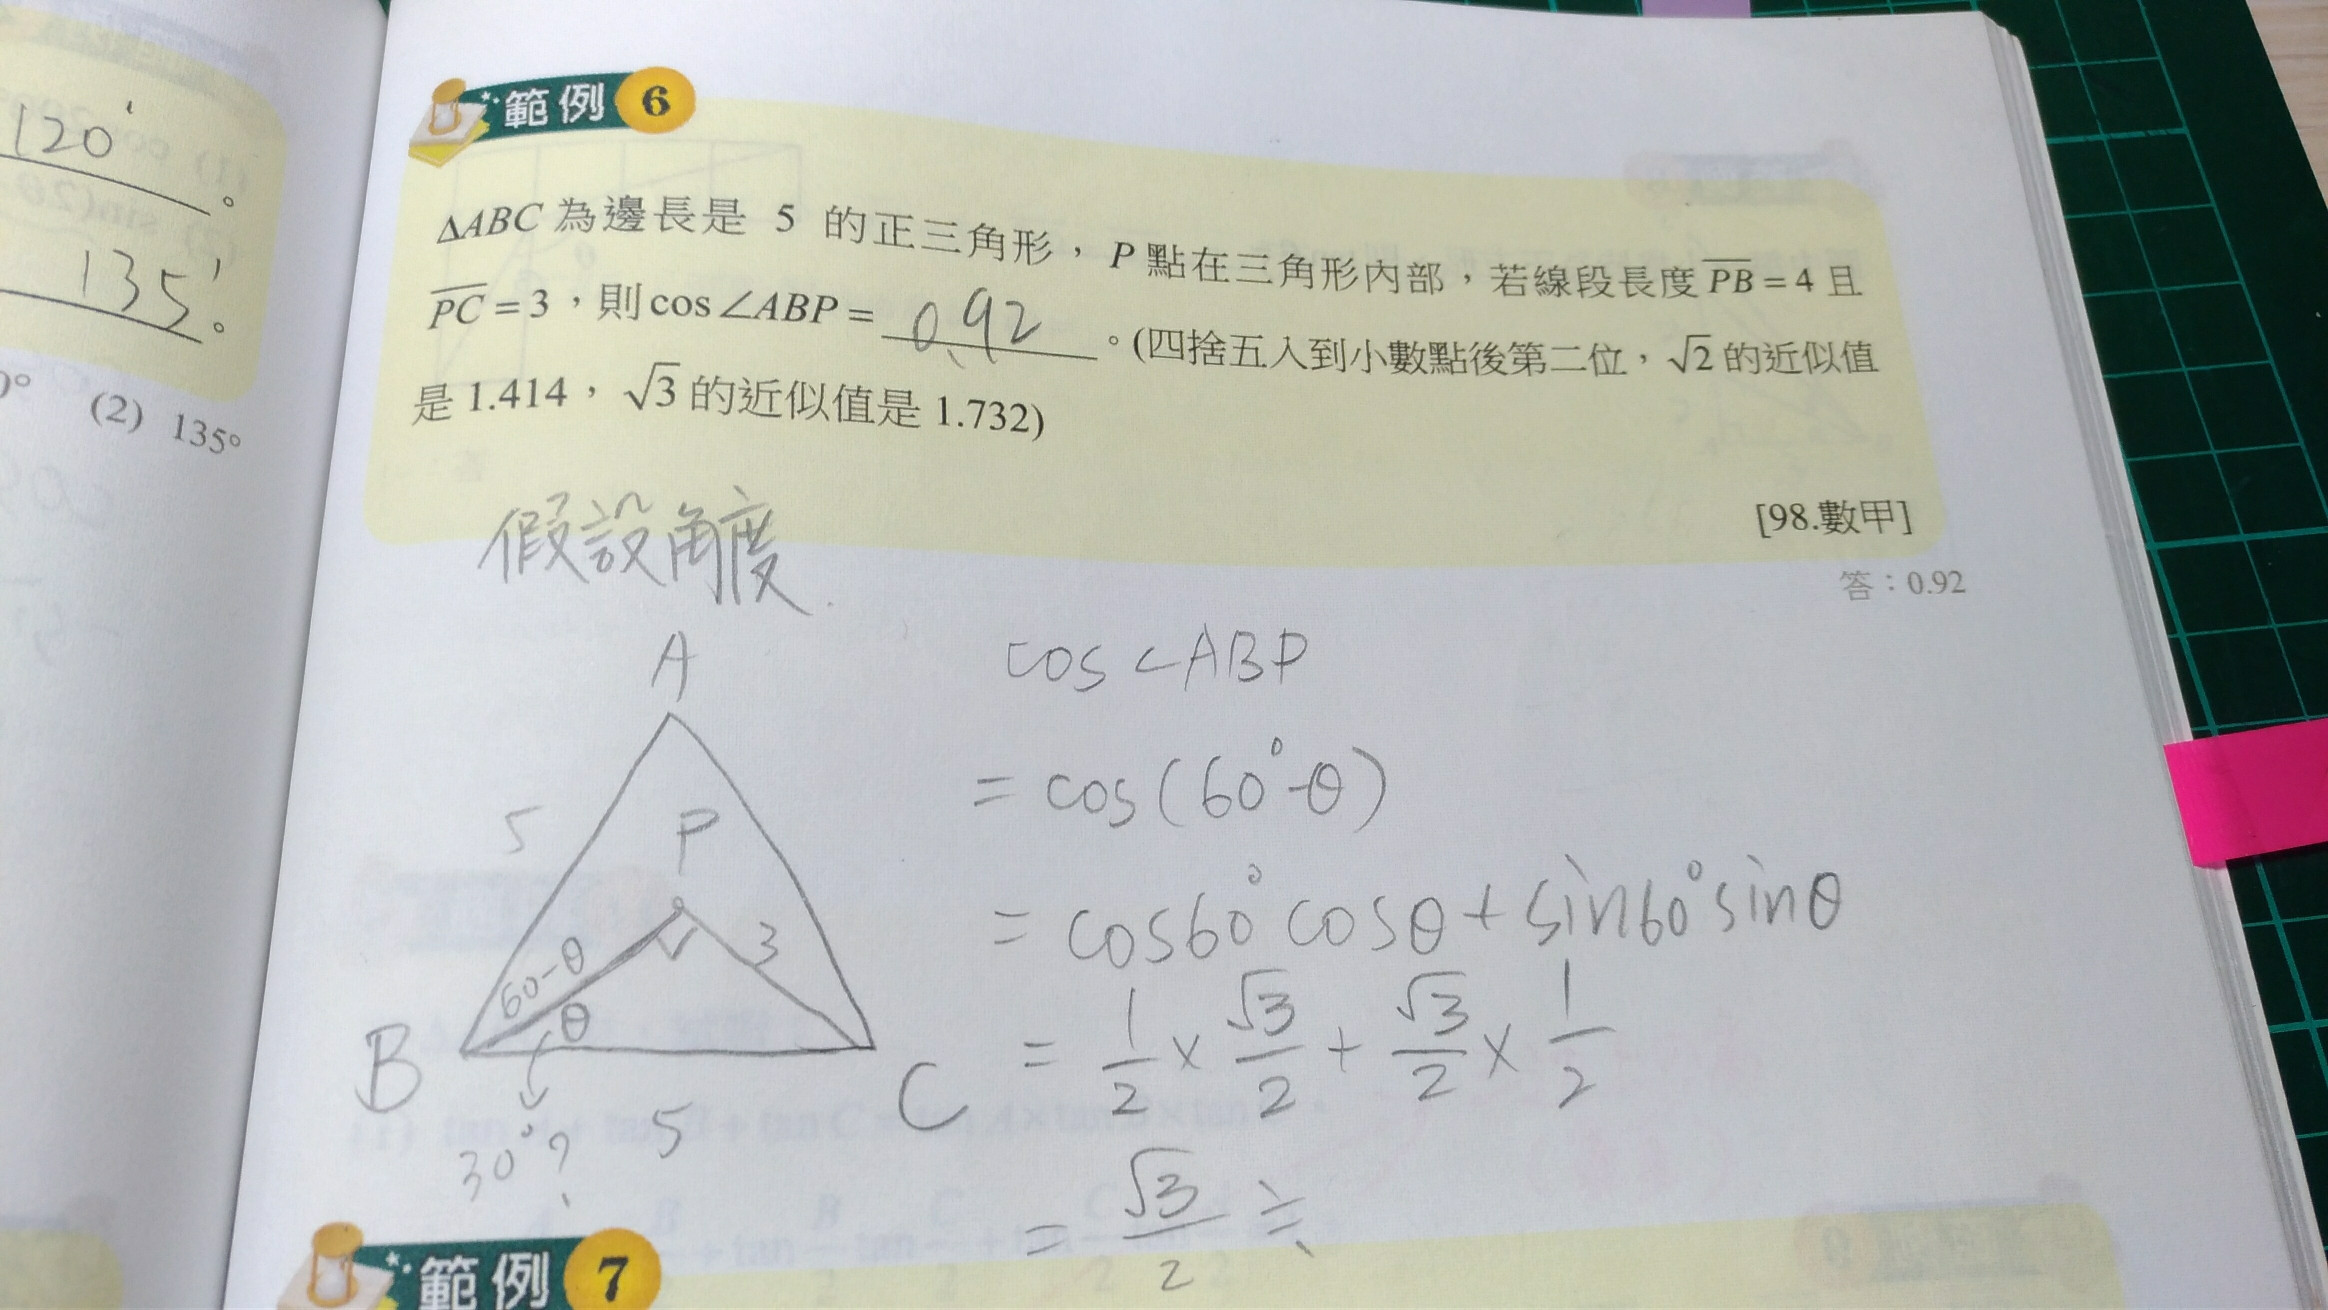 120°
。
135°
。
(2) 135°
範例 6
ΔABC 為邊長是 5 的正三角形，P 點在三角形內部，若線段長度 PB = 4 且
PC = 3，則 cos∠ABP = 0.92 。(四捨五入到小數點後第二位，√2 的近似值
是 1.414，√3 的近似值是 1.732)
[98.數甲]
答：0.92
假設角度
A
5
P
3
60-θ
θ
B
C
30°?
5
cos∠ABP
= cos(60°-θ)
= cos60° cosθ + sin60° sinθ
= 1/2 × √3/2 + √3/2 × 1/2
= √3/2 ≒
範例 7